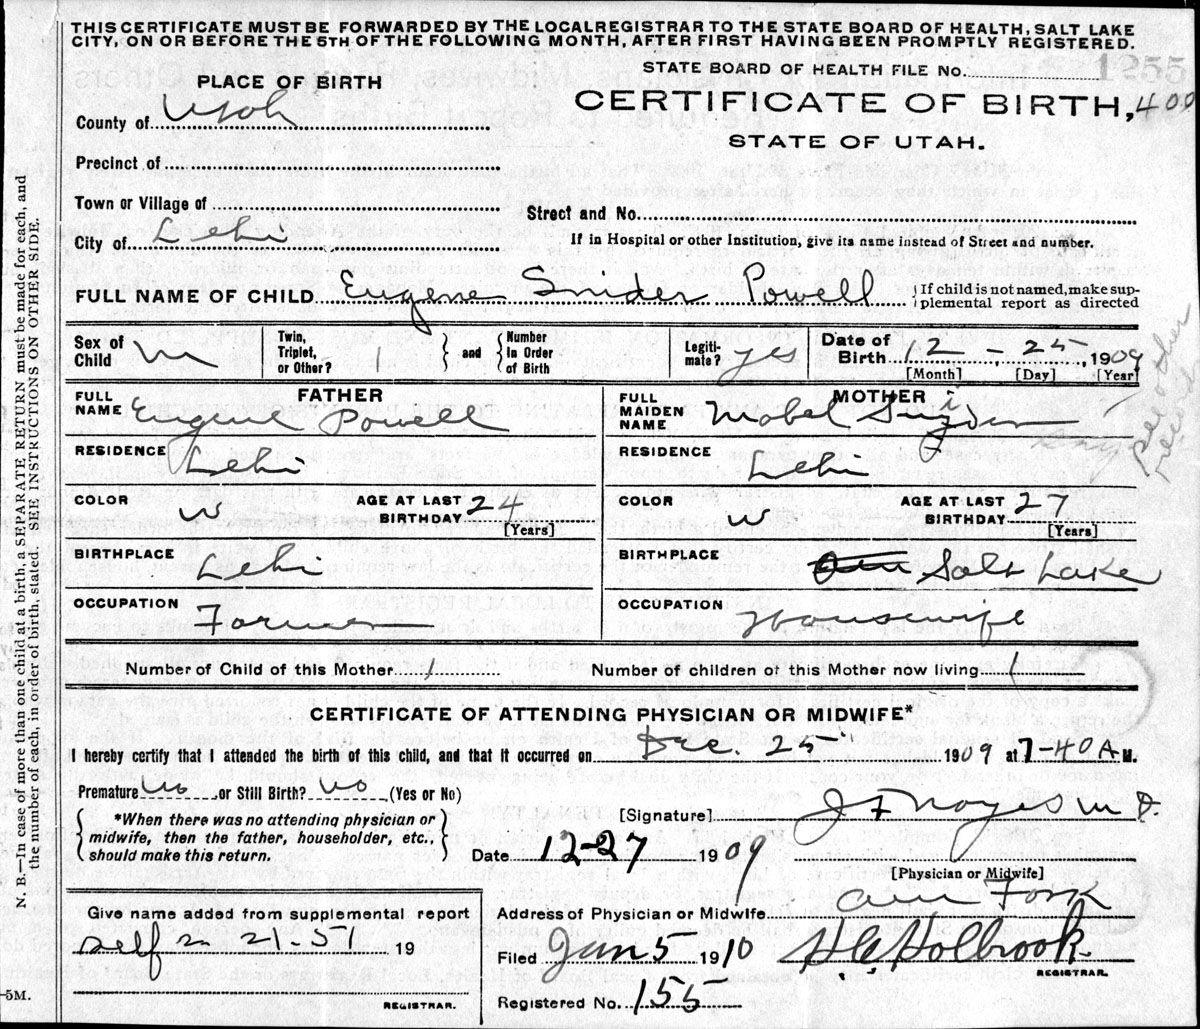 THIS CERTIFICATE MUST BE FORWARDED BY THE LOCAL REGISTRAR TO THE STATE BOARD OF HEALTH, SALT LAKE
CITY, ON OR BEFORE THE 5TH OF THE FOLLOWING MONTH, AFTER FIRST HAVING BEEN PROMPTLY REGISTERED.
STATE BOARD OF HEALTH FILE No. 1255
PLACE OF BIRTH
CERTIFICATE OF BIRTH, 400
County of Utah
STATE OF UTAH.
Precinct of
Town or Village of
Street and No.
City of Lehi
If in Hospital or other Institution, give its name instead of Street and number.
FULL NAME OF CHILD Eugene Snider Powell
If child is not named, make sup-
plemental report as directed
Sex of Child m
Twin, Triplet, or Other? 1 and Number In Order of Birth
Legiti-mate? yes
Date of Birth 12 - 25 - 1909
[Month] [Day] [Year]
FATHER
MOTHER
FULL NAME Eugene Powell
FULL MAIDEN NAME Mabel Snider
see other record
RESIDENCE Lehi
RESIDENCE Lehi
COLOR W AGE AT LAST BIRTHDAY 24 [Years]
COLOR W AGE AT LAST BIRTHDAY 27 [Years]
BIRTHPLACE Lehi
BIRTHPLACE Salt Lake
OCCUPATION Farmer
OCCUPATION Housewife
Number of Child of this Mother 1
Number of children of this Mother now living 1
CERTIFICATE OF ATTENDING PHYSICIAN OR MIDWIFE*
I hereby certify that I attended the birth of this child, and that it occurred on Dec. 25 1909 at 7-40 A M.
Premature no or Still Birth? no (Yes or No)
*When there was no attending physician or
midwife, then the father, householder, etc.,
should make this return.
[Signature] J F Noyes M D.
Date 12-27 1909
[Physician or Midwife]
Give name added from supplemental report
self 2-1-51 19
REGISTRAR.
Address of Physician or Midwife Am Fork
Filed Jan 5 1910
REGISTRAR.
Registered No. 155
-5M.
N. B.—In case of more than one child at a birth, a SEPARATE RETURN must be made for each, and
the number of each, in order of birth, stated. SEE INSTRUCTIONS ON OTHER SIDE.